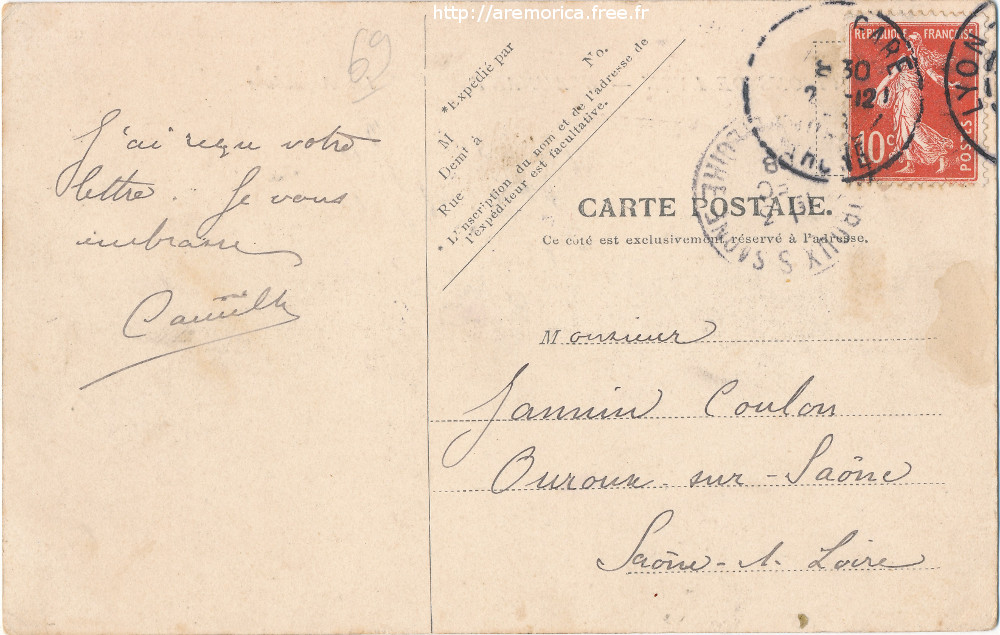 http://aremorica.free.fr
69
J'ai reçu votre
lettre. Je vous
embrasse
Camille
*Expédié par
M No.
Demt à
Rue
* L'inscription du nom et de l'adresse de
l'expéditeur est facultative.
RÉPUBLIQUE FRANÇAISE
10c
POSTES
LYON
GARE
RHONE
OUROUX S SAONE
CARTE POSTALE.
Ce côté est exclusivement réservé à l'adresse.
Monsieur
Jannin Coulon
Ouroux-sur-Saône
Saône-&-Loire